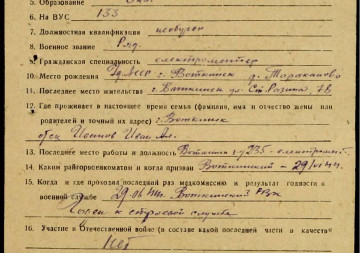 5. Образование
6. На ВУС 133
7. Должностная квалификация
8. Военное звание Ряд.
9. Гражданская специальность электромонтер
10. Место рождения г. Воткинск д. Тараканово
11. Последнее место жительства г. Воткинск ул. Ст. Разина, 78
12. Где проживает в настоящее время семья (фамилия, имя и отчество жены или
родителей и точный их адрес) г. Воткинск
отец Иван Ал.
13. Последнее место работы и должность Воткинск 235- электромонт.
14. Каким райгорвоенкоматом и когда призван Воткинский - 29
15. Когда и где проходил последний раз медкомиссию и результат годности к
военной службе 29 Воткинский РВК
Годен к строевой службе
16. Участие в Отечественной войне (в составе какой последней части и качестве)
Нет